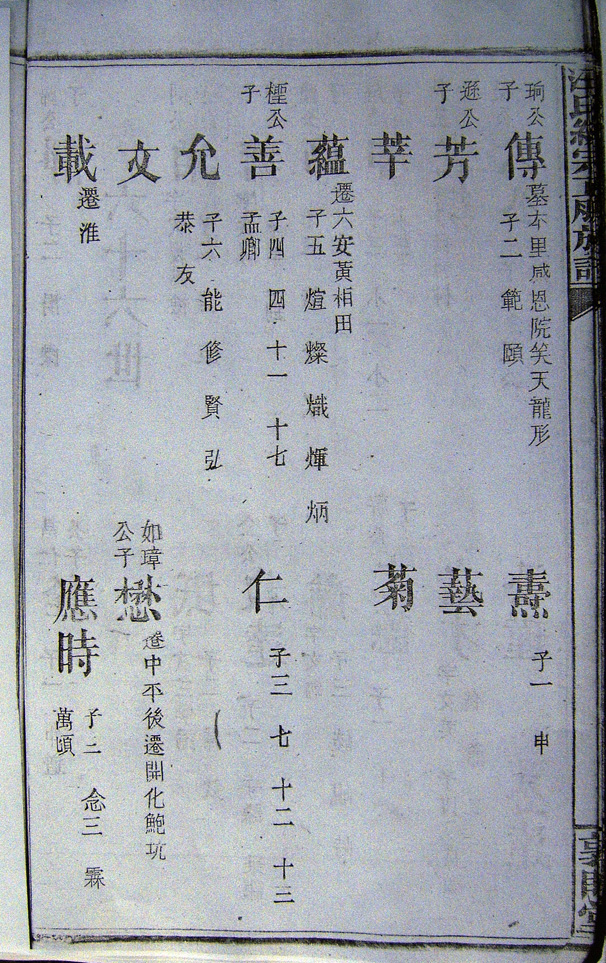 珦公子
傳
墓本里感恩院笑天龍形
子二 範 頤
燾
子一 申
遜公子
芳
藝
莘
菊
蘊
遷六安黃相田
子五 煊 燦 熾 煇 炳
樫公子
善
子四 四 十一 十七
孟卿
仁
子三 七 十二 十三
允
子六 能 修 賢 弘
恭 友
文
如璋公子
懋
遷中平後遷開化鮑坑
載
遷淮
應時
子二 念三 霖
萬頃